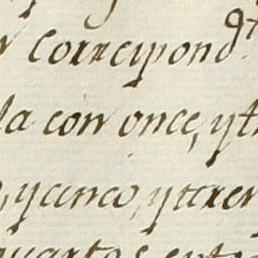 Correspond.te
la con once, yt
, y cinco, y ttren
quartos